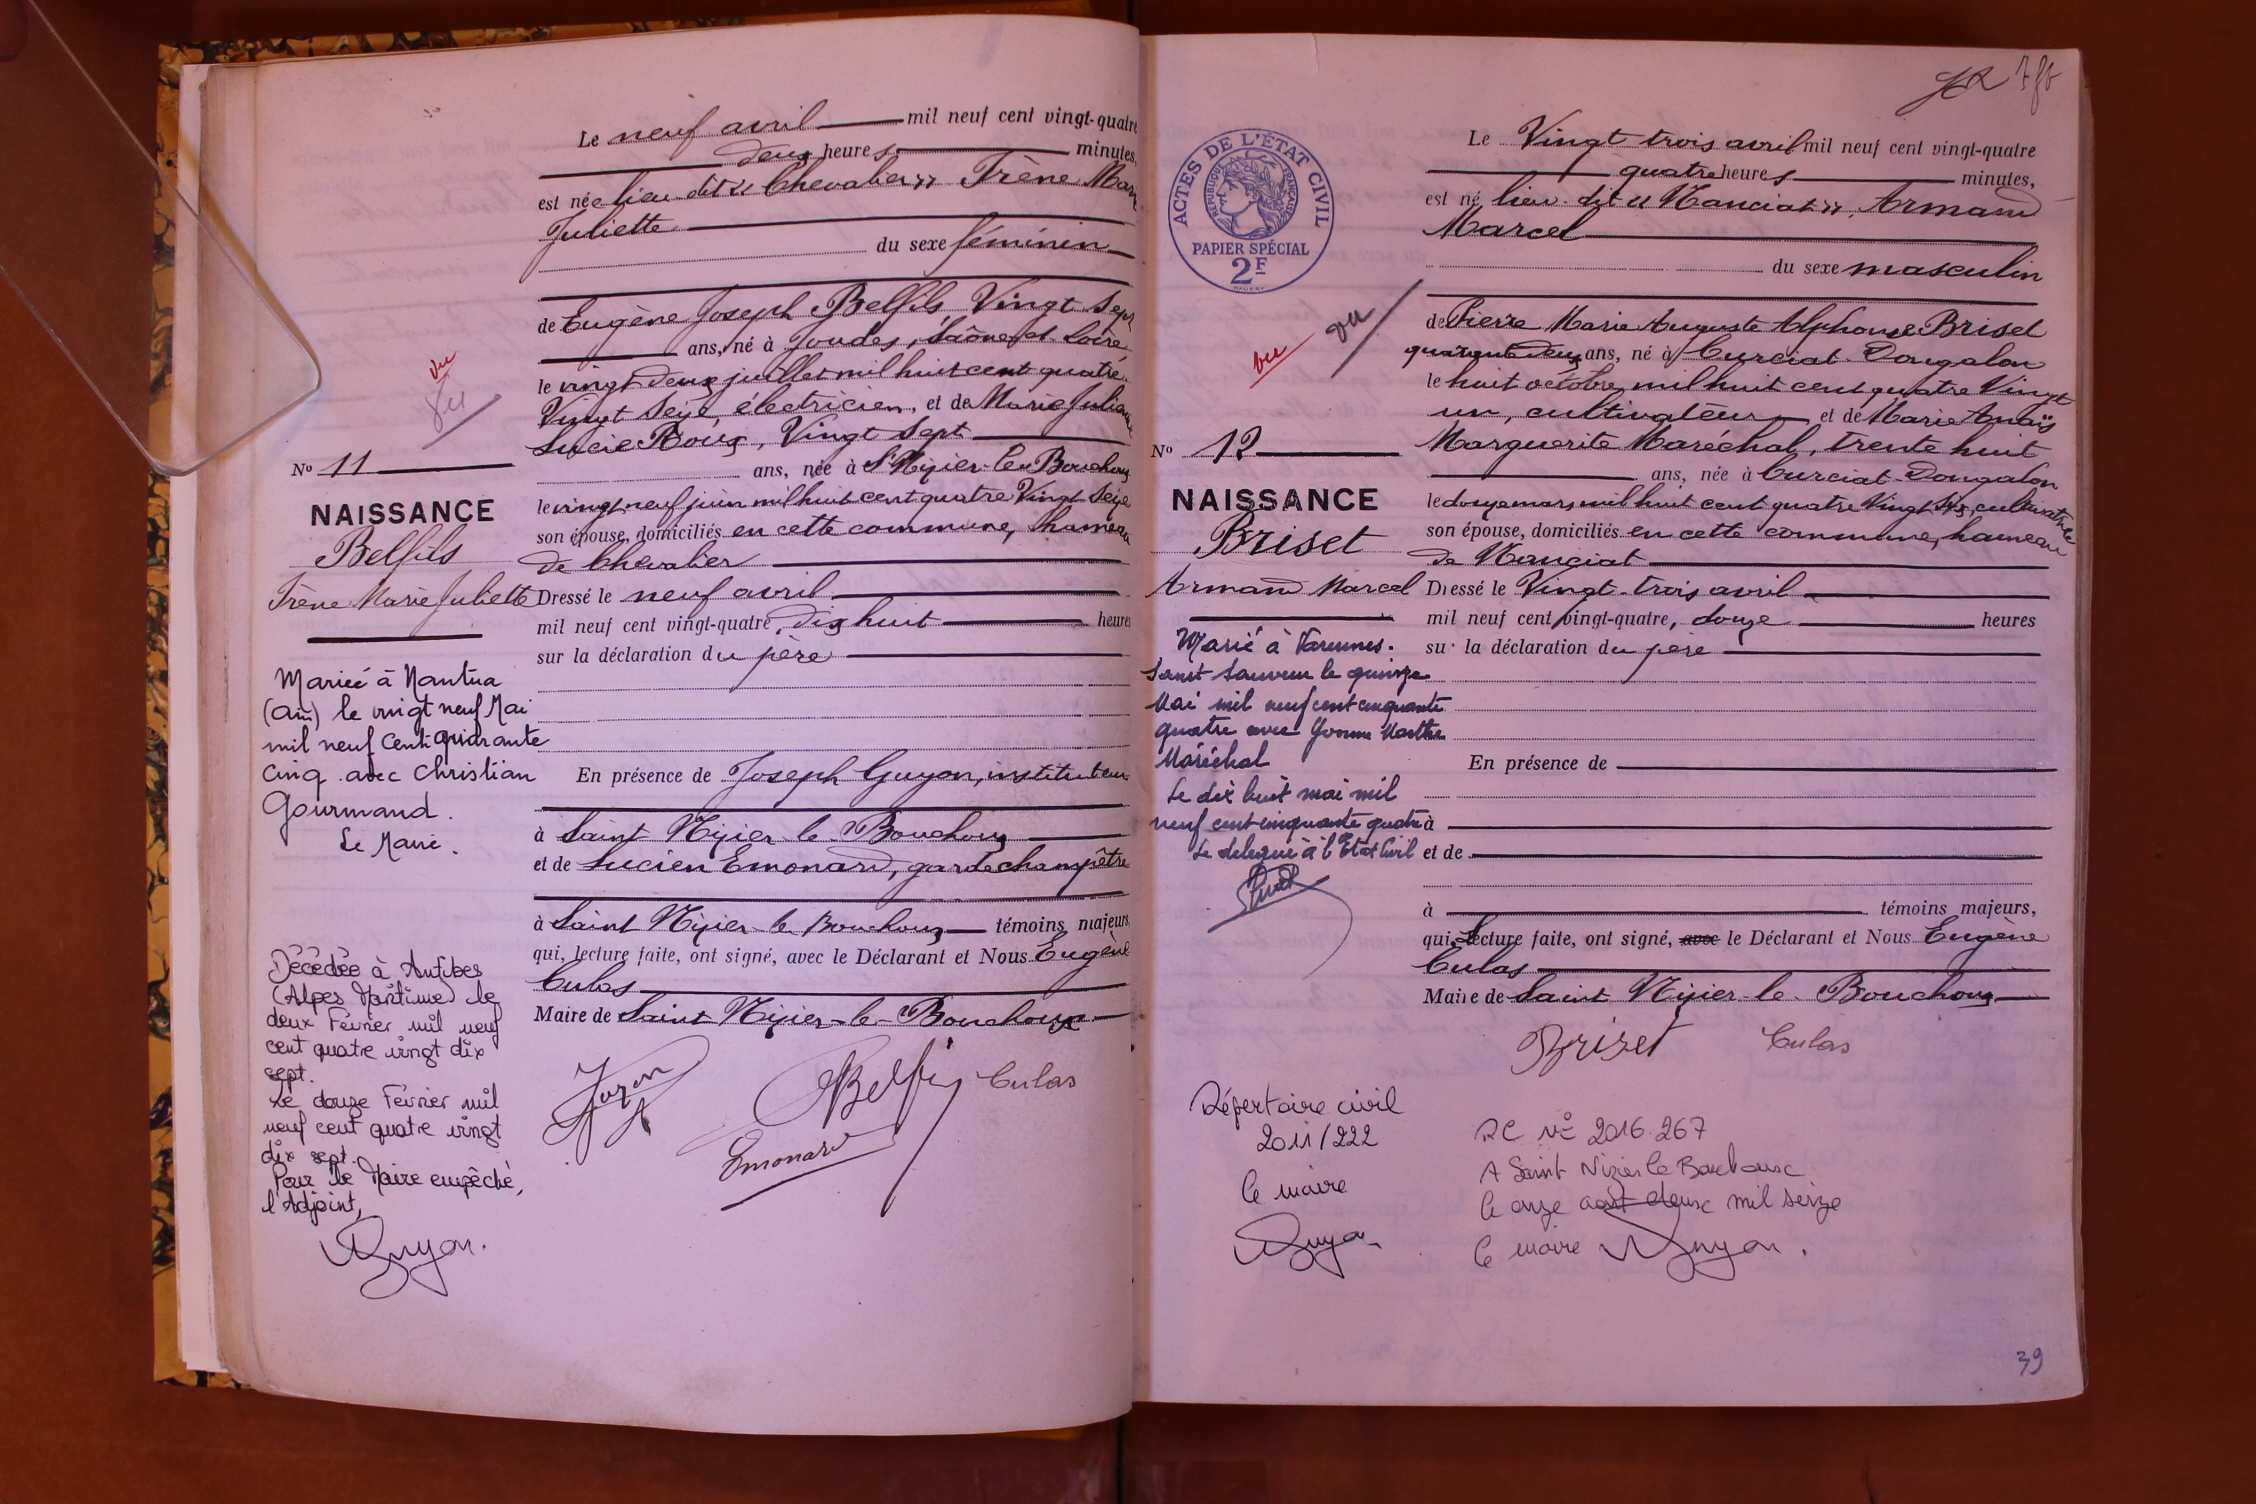 Le neuf avril mil neuf cent vingt-quatre
deux heures minutes,
est née lieu-dit "Chevalier" Irène Marie
Juliette
du sexe féminin
de Eugène Joseph Belfils, Vingt sept
ans, né à Joudes, Saône et Loire
le vingt deux juillet mil huit cent quatre
Vingt seize, électricien, et de Marie Julienne
Lucie Roux, Vingt sept
ans, née à St Nizier-le-Bouchoux
le vingt neuf juin mil huit cent quatre Vingt seize
son épouse, domiciliés en cette commune, hameau
de Chevalier
Dressé le neuf avril
mil neuf cent vingt-quatre, dix huit heures
sur la déclaration du père
En présence de Joseph Guyon, instituteur
à Saint Nizier-le-Bouchoux
et de Lucien Emonard, garde champêtre
à Saint Nizier-le-Bouchoux témoins majeurs
qui, lecture faite, ont signé, avec le Déclarant et Nous Eugène
Culas
Maire de Saint Nizier-le-Bouchoux
Belfils
Culas
Emonard
vu
vu
No 11
NAISSANCE
Belfils
Irène Marie Juliette
Mariée à Nantua
(Ain) le vingt neuf Mai
mil neuf cent quarante
cinq avec Christian
Gourmand.
Le Maire.
Décédée à Antibes
(Alpes Maritimes) le
deux Février mil neuf
cent quatre vingt dix
sept.
Le douze Février mil
neuf cent quatre vingt
dix sept.
Pour le Maire empêché,
l'Adjoint,
Guyon.
ACTES DE L'ÉTAT CIVIL
RÉPUBLIQUE FRANÇAISE
PAPIER SPÉCIAL
2F
Le Vingt trois avril mil neuf cent vingt-quatre
quatre heures minutes,
est né lieu-dit "Nanciat", Armand
Marcel
du sexe masculin
de Pierre Marie Auguste Alphonse Briset
quarante deux ans, né à Curciat-Dongalon
le huit octobre mil huit cent quatre Vingt
un, cultivateur et de Marie Anaïs
Marguerite Maréchal, trente huit
ans, née à Curciat-Dongalon
le douze mars mil huit cent quatre Vingt six, cultivatrice
son épouse, domiciliés en cette commune, hameau
de Nanciat
Dressé le Vingt-trois avril
mil neuf cent vingt-quatre, douze heures
sur la déclaration du père
En présence de
à
et de
à témoins majeurs,
qui, lecture faite, ont signé, avec le Déclarant et Nous Eugène
Culas
Maire de Saint Nizier-le-Bouchoux
Briset
Culas
vu
vu
No 12
NAISSANCE
Briset
Armand Marcel
Marié à Varennes-
Saint Sauveur le quinze
Mai mil neuf cent cinquante
quatre avec Yvonne Marthe
Maréchal
Le dix huit mai mil
neuf cent cinquante quatre
Le délégué à l'Etat Civil
Répertoire civil
2011/222
le maire
Guyon
RC N° 2016.267
A Saint Nizier le Bouchoux
le onze aout deux mil seize
le maire Guyon.
39